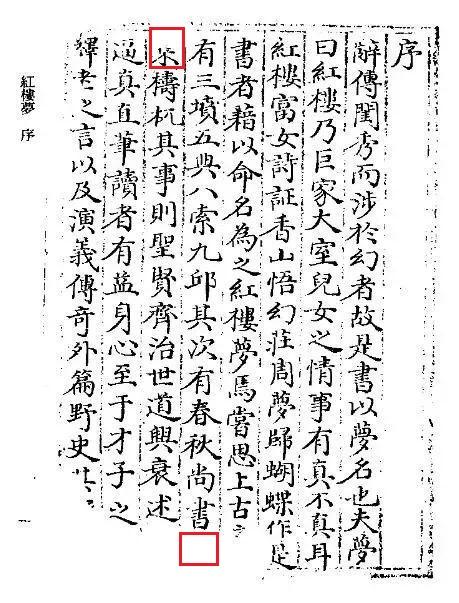 序
辭傳閨秀而涉於幻者故是書以夢名也夫夢
曰紅樓乃巨家大室兒女之情事有真不真耳
紅樓富女詩証香山悟幻莊周夢歸蝴蝶作是
書者藉以命名為之紅樓夢焉嘗思上古
有三墳五典八索九邱其次有春秋尚書
檮杌其事則聖賢齊治世道興衰述
逼真直筆讀者有益身心至于才子之
釋老之言以及演義傳奇外篇野史
紅樓夢 序
一